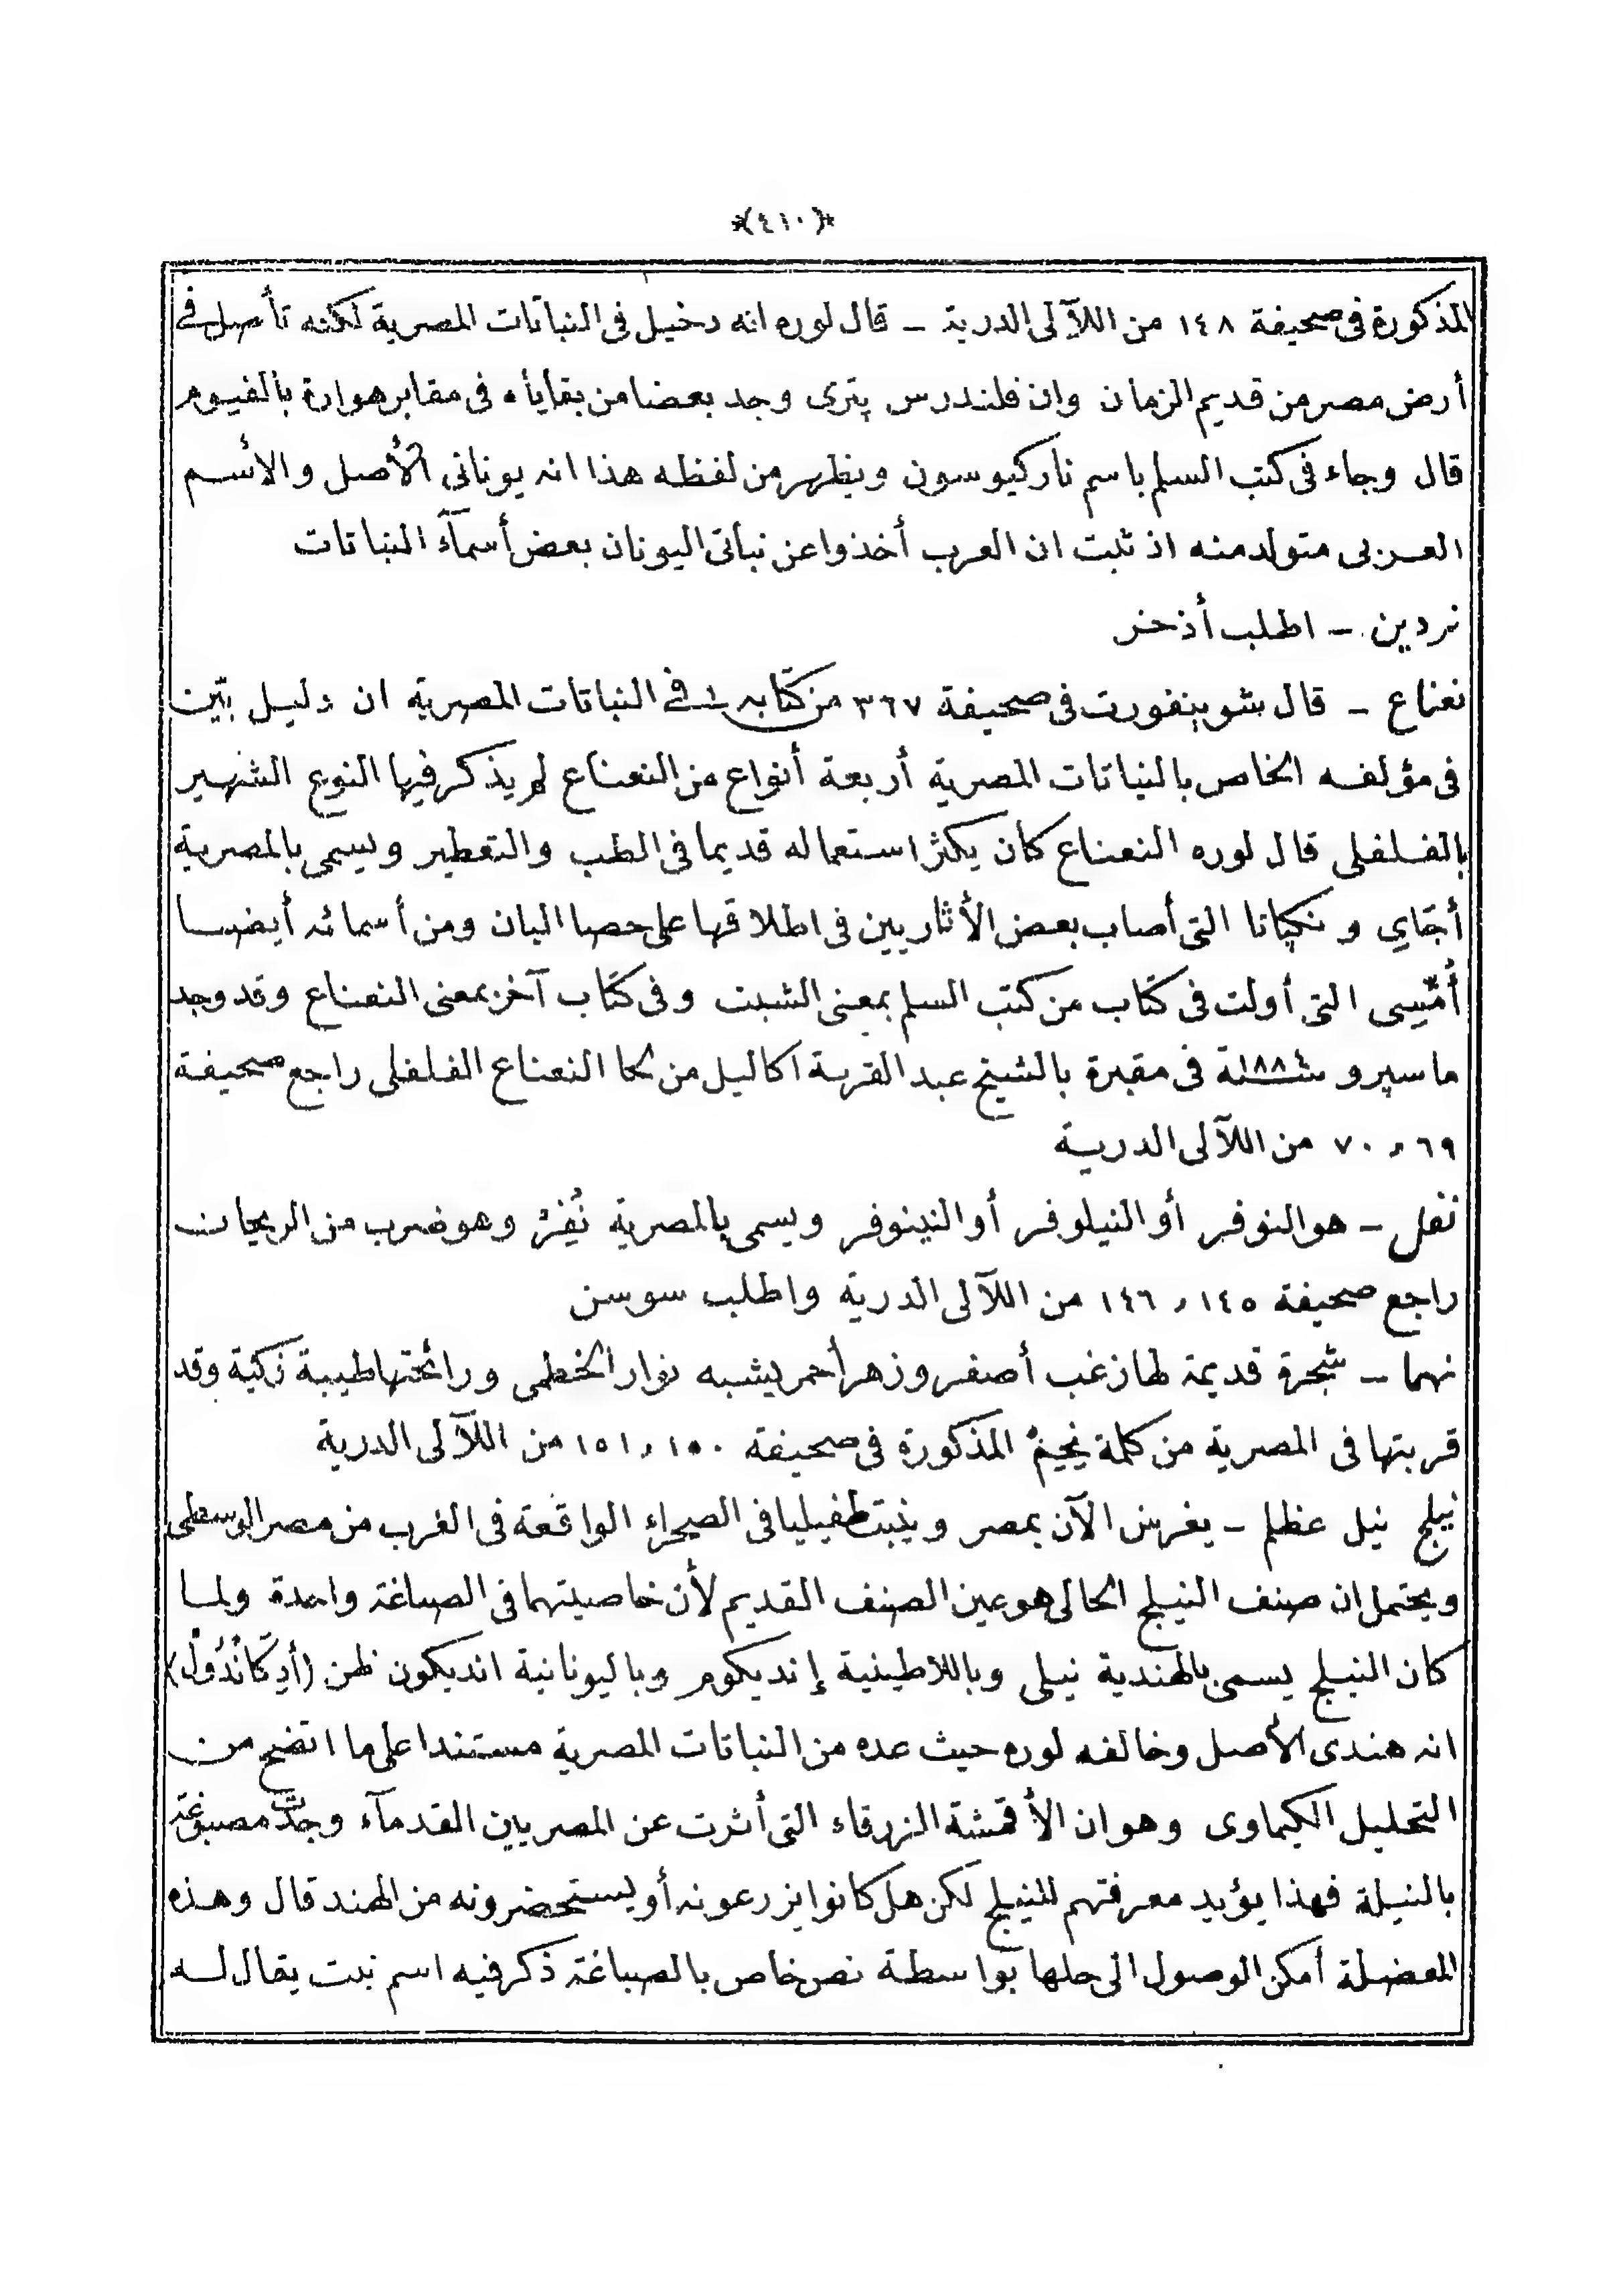 *(٤١٠)*
المذكورة فى صحيفة ١٤٨ من اللآلى الدرية – قال لوره انه دخيل فى النباتات المصرية لكنه تأصل فى
أرض مصر من قديم الزمان وان فلندرس پترى وجد بعضا من بقاياه فى مقابر هوارة بالفيوم
قال وجاء فى كتب السلم باسم ناركيوسون ويظهر من لفظه هذا انه يونانى الأصل والأسم
العربى متولد منه اذ ثبت ان العرب أخذوا عن نباتى اليونان بعض أسمآء النباتات
نردين – اطلب أذخر
نعناع – قال شوينفورت فى صحيفة ٣٦٧ من كتابه فى النباتات المصرية ان دليل
فى مؤلفه الخاص بالنباتات المصرية أربعة أنواع من النعناع لم يذكر فيها النوع الشهير
بالفلفلى قال لوره النعناع كان يكثر استعماله قديما فى الطب والتعطير ويسمى بالمصرية
أجَاي و نكپاتا التى أصاب بعض الأثاريين فى اطلاقها على حصا البان ومن أسمائه أيضا
أمّيسى التى أولت فى كتاب من كتب السلم بمعنى الشبت وفى كتاب آخر بمعنى النعناع وقد وجد
ماسپرو ١٨٨ سنة فى مقبرة بالشيخ عبد القرنة اكاليل من النعناع الفلفلى راجع صحيفة
٦٩ و ٧٠ من اللآلى الدرية
نفل – هو النوفر أو النيلوفر أو النينوفر ويسمى بالمصرية نُفِرْ وهو ضرب من الريحان
راجع صحيفة ١٤٥ و ١٤٦ من اللآلى الدرية واطلب سوسن
نهما – شجرة قديمة لها زغب أصفر وزهر أحمر يشبه نوار الخطمى ورائحتها طيبة زكية وقد
قربتها فى المصرية من كلمة المذكورة فى صحيفة ١٥٠ و ١٥١ من اللآلى الدرية
نيلج نيل عظلم – يغرس الآن بمصر وينبت طفيليا فى الصحراء الواقعة فى الغرب من مصر الوسطى
ويحتمل ان صنف النيلج الحالى هو عين الصنف القديم لأن خاصيتهما فى الصباغة واحدة ولما
كان النيلج يسمى بالهندية نيلى وباللاطينية إنديكوم وباليونانية انديكون ظن (أدِكَانْدُولْ)
انه هندى الأصل وخالفه لوره حيث عده من النباتات المصرية مستندا على ما اتضح من
التحليل الكيماوى وهو ان الأقمشة الزرقاء التى أثرت عن المصريين القدمآء وجدت مصبوغة
بالنيلة فهذا يؤيد معرفتهم للنيلج لكن هل كانوا يزرعونه أو يستحضرونه من الهند قال وهذه
المعضلة أمكن الوصول الى حلها بواسطة نص خاص بالصباغة ذكر فيه اسم نبت يقال له